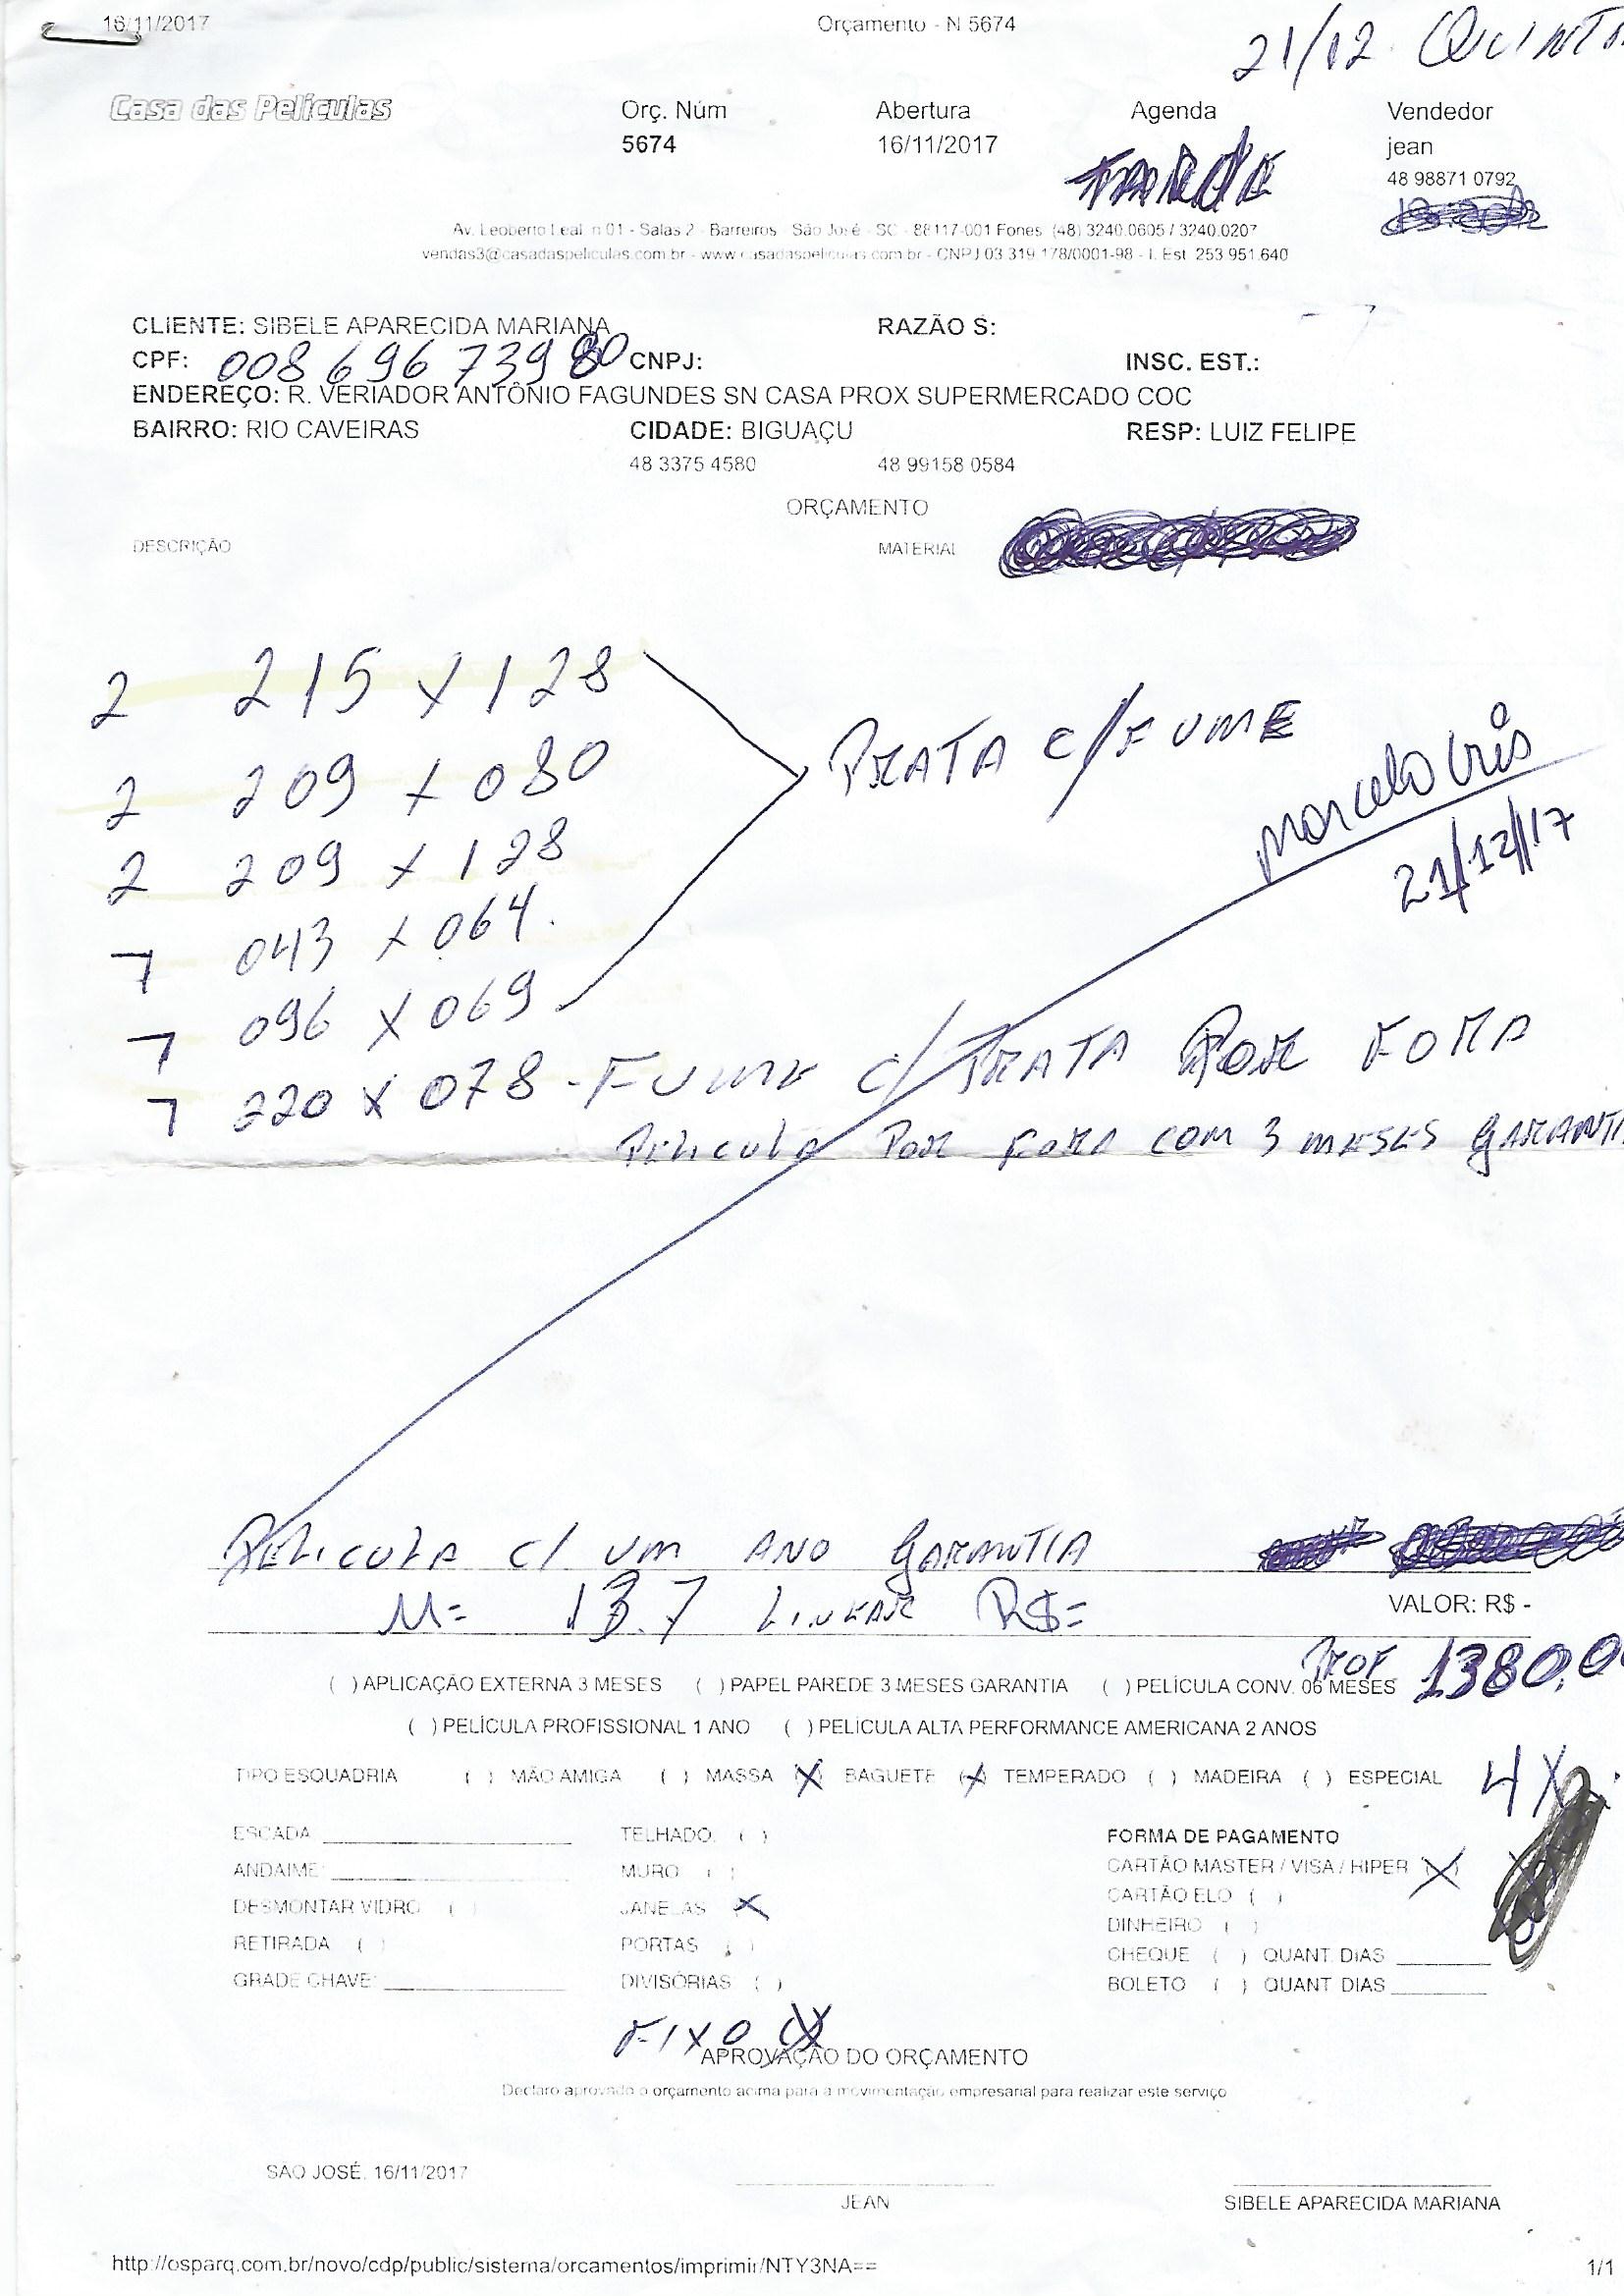 16/11/2017 Orçamento - N 5674
21/12. QUINTA
Casa das Películas Orç. Núm Abertura Agenda Vendedor
5674 16/11/2017 TARDE jean
48 98871 0792
Av. Leoberto Leal n 01 - Salas 2 - Barreiros - São José - SC - 88117-001 Fones (48) 3240.0605 / 3240.0207
vendas3@casadaspeliculas.com.br - www.casadaspeliculas.com.br - CNPJ 03 319 178/0001-98 - I. Est 253 951.640
CLIENTE: SIBELE APARECIDA MARIANA RAZÃO S:
CPF: 008 696 739 80 CNPJ: INSC. EST.:
ENDEREÇO: R. VERIADOR ANTÔNIO FAGUNDES SN CASA PROX SUPERMERCADO COC
BAIRRO: RIO CAVEIRAS CIDADE: BIGUAÇU RESP: LUIZ FELIPE
48 3375 4580 48 99158 0584
ORÇAMENTO
DESCRIÇÃO MATERIAL
2 215 x 128
PRATA C/FUME
2 209 x 080
2 209 x 128
marcelo
21/12/17
1 043 x 064.
1 096 x 069
1 220 x 078 - FUME C/ PRATA POR FORA
PELICULA POR FORA COM 3 MESES GARANTI
PELICULA C/ UM ANO GARANTIA
M= 13.7 LINEAR R$= VALOR: R$ -
PROF 1380,0
( ) APLICAÇÃO EXTERNA 3 MESES ( ) PAPEL PAREDE 3 MESES GARANTIA ( ) PELÍCULA CONV. 06 MESES
( ) PELÍCULA PROFISSIONAL 1 ANO ( ) PELÍCULA ALTA PERFORMANCE AMERICANA 2 ANOS
TIPO ESQUADRIA ( ) MÃO AMIGA ( ) MASSA (X) BAGUETE (X) TEMPERADO ( ) MADEIRA ( ) ESPECIAL 4X
ESCADA TELHADO ( ) FORMA DE PAGAMENTO
ANDAIME: MURO ( ) CARTÃO MASTER / VISA / HIPER (X)
DESMONTAR VIDRO ( ) JANELAS (X) CARTÃO ELO ( )
DINHEIRO ( )
RETIRADA ( ) PORTAS ( ) CHEQUE ( ) QUANT DIAS
GRADE CHAVE: DIVISÓRIAS ( ) BOLETO ( ) QUANT DIAS
FIXO (X)
APROVAÇÃO DO ORÇAMENTO
Declaro aprovado o orçamento acima para a movimentação empresarial para realizar este serviço
SAO JOSÉ, 16/11/2017
JEAN SIBELE APARECIDA MARIANA
http://osparq.com.br/novo/cdp/public/sistema/orcamentos/imprimir/NTY3NA== 1/1